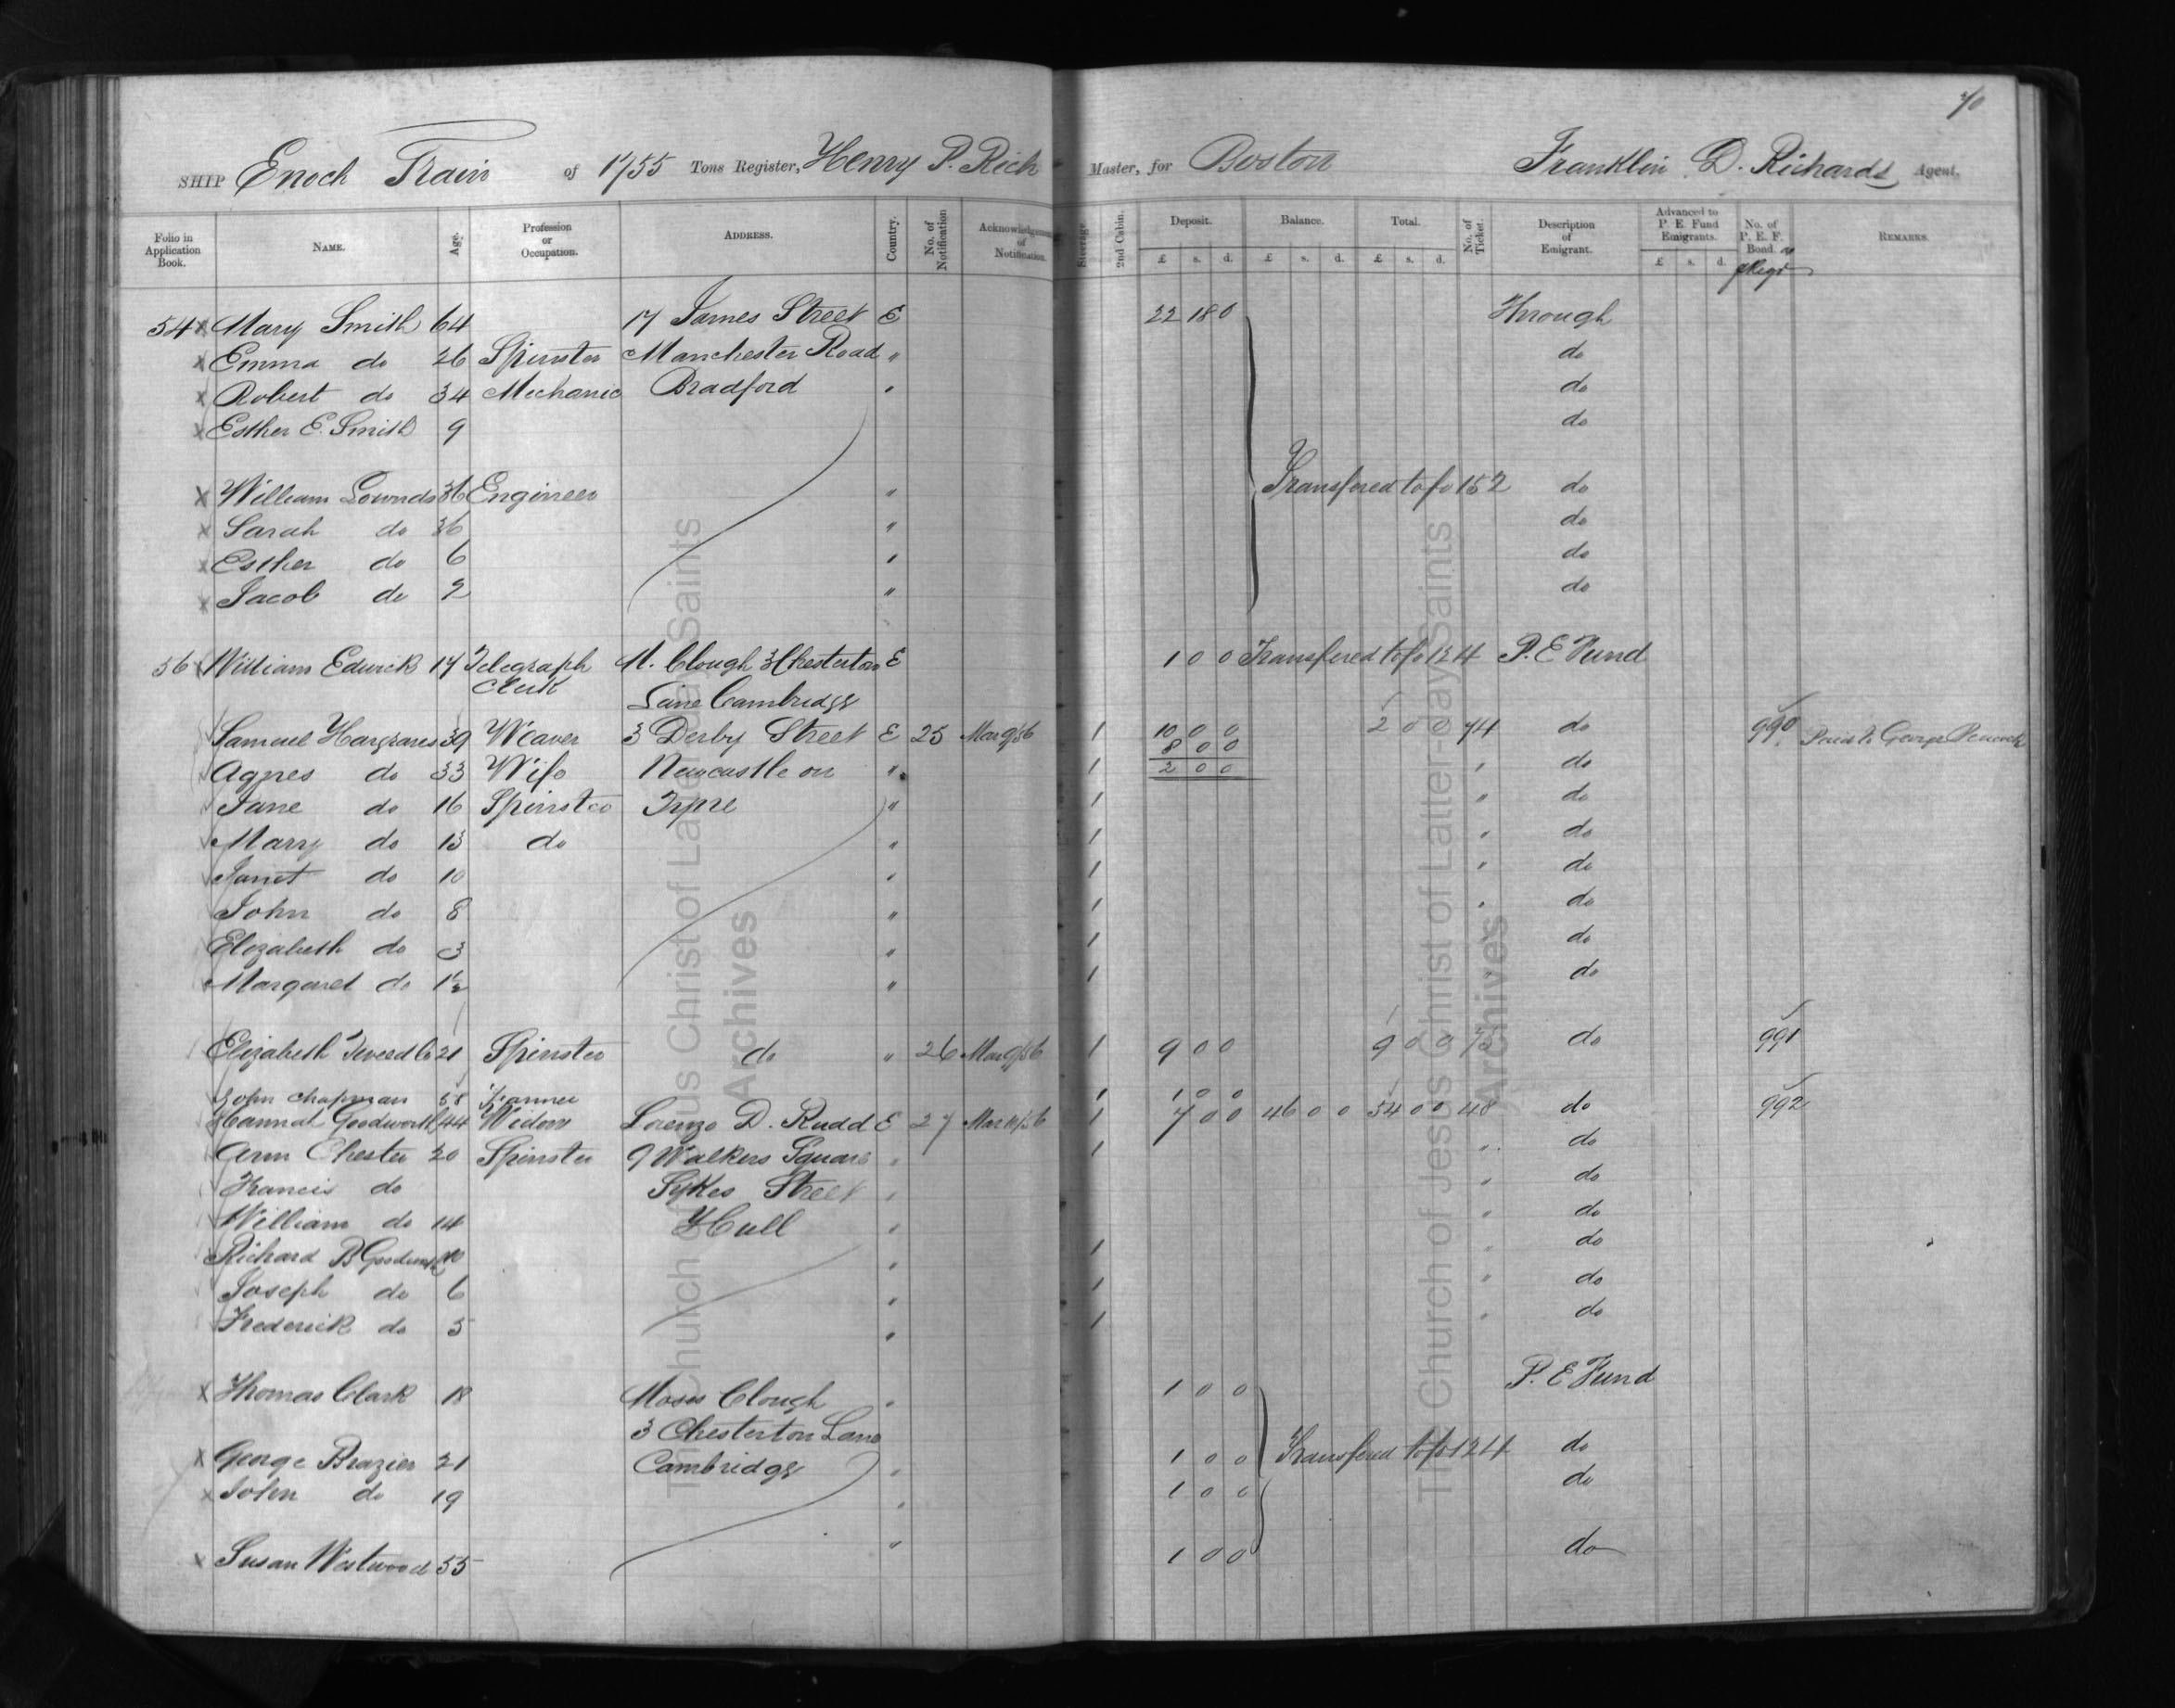 70
SHIP Enoch Train of 1755 Tons Register, Henry P. Rich Master, for Boston Franklin D. Richards Agent.
Folio in Application Book. NAME. Age. Profession or Occupation. ADDRESS. Country. No. of Notification Acknowledgment of Notification. Steerage. 2nd Cabin. Deposit. £ s. d. Balance. £ s. d. Total. £ s. d. No. of Ticket. Description of Emigrant. Advanced to P. E. Fund Emigrants. £ s. d. No. of P. E. F. Bond. REMARKS.
54 x Mary Smith 64 17 James Street E 22 18 0 Through
x Emma do 26 Spinster Manchester Road " do
x Robert do 34 Mechanic Bradford " do
x Esther E. Smith 9 do
x William Lownds 36 Engineer " Transfered to fo 152 do
x Sarah do 36 " do
x Esther do 6 " do
x Jacob do 2 " do
56 x William Edwick 17 Telegraph M. Clough 3 Chesterton E 1 0 0 Transfered to fo 124 P. E Fund
Clerk Lane Cambridge
Samuel Hargraves 39 Weaver 3 Derby Street E 25 Mar 9/56 1 10 0 0 2 0 0 74 do 990 Paid to George Peacock
8 0 0
Agnes do 33 Wife Newcastle on " 1 2 0 0 " do
Jane do 16 Spinster Tyne " 1 " do
Mary do 13 do " 1 " do
Janet do 10 " 1 " do
John do 8 " 1 " do
Elizabeth do 3 " 1 do
Margaret do 1½ " 1 do
Elizabeth 21 Spinster do " 26 Mar 9/56 1 9 0 0 9 0 0 75 do 991
John Chapman 58 1 1 0 0
Hannah Goodworth 44 Widow Lorenzo D. Rudd E 27 Mar 10/56 1 7 0 0 46 0 0 54 0 0 48 do 992
Ann Chester 20 Spinster 9 Walkers Square " 1 " do
Francis do Sykes Street " " do
William do 14 Hull " " do
Richard B Goodworth 10 " 1 " do
Joseph do 6 " 1 " do
Frederick do 5 " 1 " do
x Thomas Clark 18 Moses Clough " 1 0 0 P. E Fund
3 Chesterton Lane
x George Brazier 21 Cambridge " 1 0 0 Transfered to fo 124 do
x John do 19 " 1 0 0 do
x Susan Westwood 55 " 1 0 0 do
The Church of Jesus Christ of Latter-day Saints
Archives
The Church of Jesus Christ of Latter-day Saints
Archives